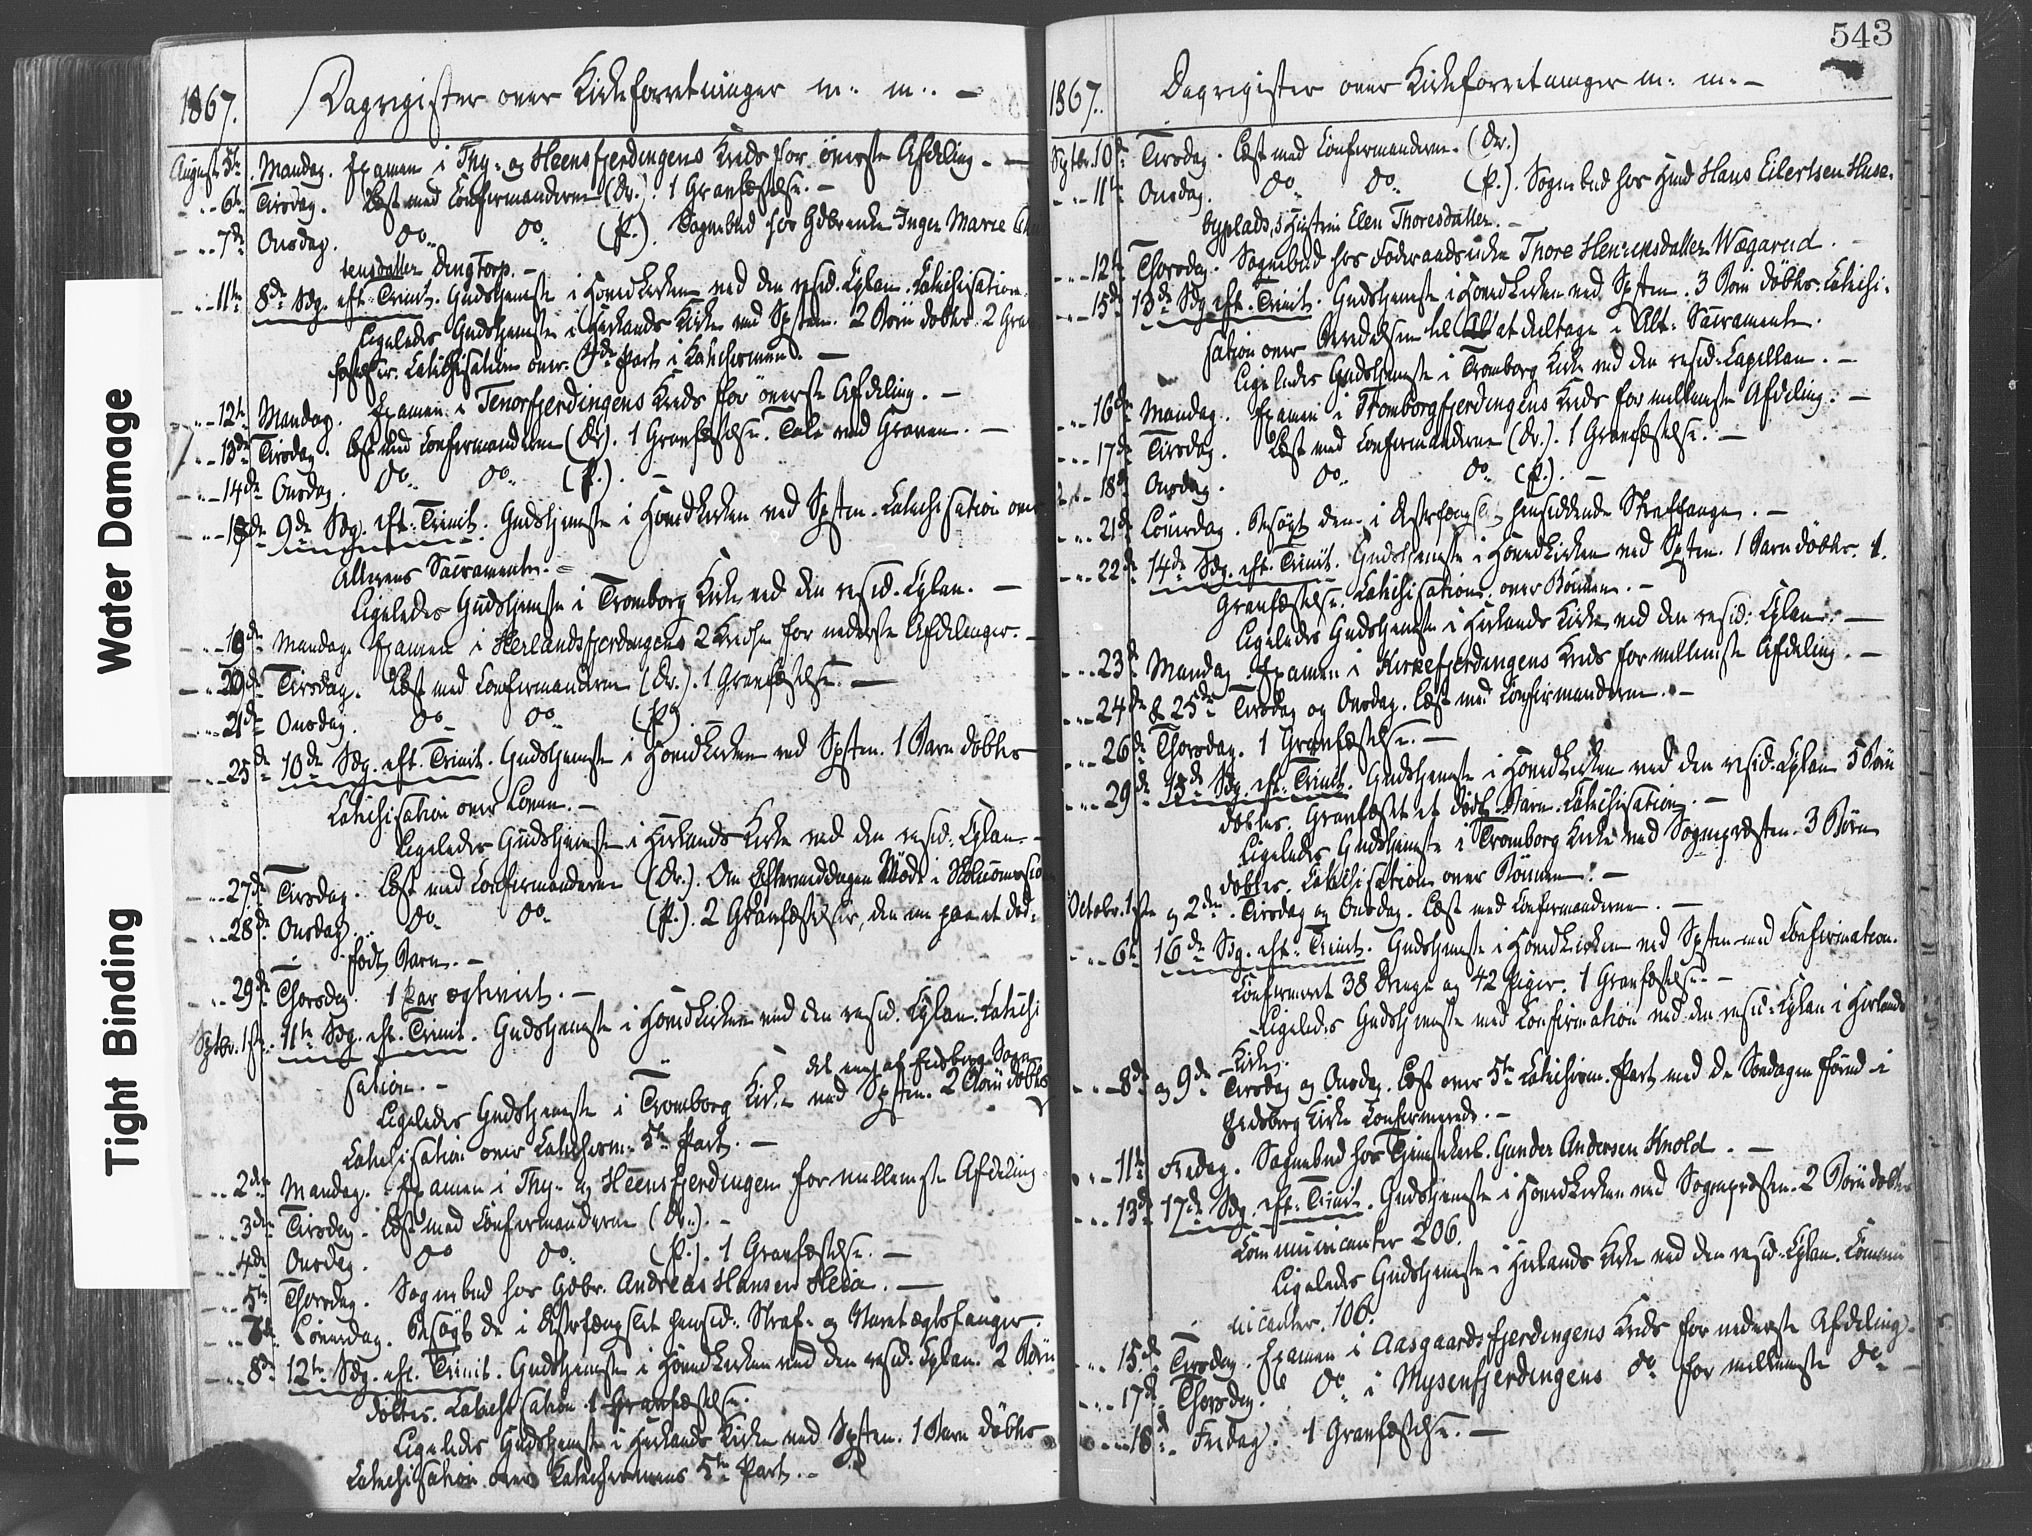 543
Water Damage
Tight Binding
1867. Dagregister over Kirkeforretninger m. m. —
August 5te Mandag. Examen i Thy- og Heensfjerdingens Kreds for øverste Afdeling. —
6te Tirsdag. Læst med Confirmanderne (Dr.). 1 Gravfæstelse. —
7de Onsdag. do do (P.). Sognebud hos Gdbrenke Inger Marie
tensdatter Dingtorp. —
11te 8de Sdg. eft. Trinit. Gudstjeneste i Hovedkirken ved den resid. Cplan. Catechisation.
Ligeledes Gudstjeneste i Herlands Kirke ved Spsten. 2 Børn døbtes. 2 Grav
fæstelser. Catechisation over 4de Part i Katechismen. —
12te Mandag. Examen i Tenorfjerdingens Kreds for øverste Afdeling. —
13de Tirsdag. Læst med Confirmanderne (Dr). 1 Gravfæstelse. Tale ved Graven. —
14de Onsdag. do do (P.). —
18de 9de Sdg. eft. Trinit. Gudstjeneste i Hovedkirken ved Spsten. Catechisation over
Alterens Sacramente. —
Ligeledes Gudstjeneste i Tromborg Kirke ved den resid. Cplan. —
19de Mandag. Examen i Herlandsfjerdingens 2 Kredse for nederste Afdelinger. —
20de Tirsdag. Læst med Confirmanderne (Dr.). 1 Gravfæstelse. —
21de Onsdag. do do (P).
25de 10de Sdg. eft. Trinit. Gudstjeneste i Hovedkirken ved Spsten. 1 Barn døbtes
Catechisation over Loven. —
Ligeledes Gudstjeneste i Herlands Kirke ved den resid. Cplan. —
27de Tirsdag. Læst med Confirmanderne (Dr.). Om Eftermiddagen Møde i
28de Onsdag. do do (P.). 2 Gravfæstelser, den ene paa et død-
født Barn. —
29de Thorsdag. 1 Par ægteviet. —
Septbr. 1ste 11te Sdg. eft. Trinit. Gudstjeneste i Hovedkirken ved den resid. Cplan. Catechi
sation. —
det ene af Eidsberg Sogn
Ligeledes Gudstjeneste i Tromborg Kirke ved Spsten. 2 Børn døbtes
Catechisation over Catechism. 5te Part. —
2den Mandag. Examen i Thy- og Heensfjerdingen for mellemste Afdeling.
3die Tirsdag. Læst med Confirmanderne (Dr.). —
4de Onsdag. do do (P.). 1 Gravfæstelse. —
5te Thorsdag. Sognebud hos Gdbr. Andreas Hansen Heia. —
7de Løverdag. Besøgt de i Distrfængslet hensid. Straf- og Varetægtsfanger.
8de 12te Sdg. eft. Trinit. Gudstjeneste i Hovedkirken ved den resid. Cplan. 2 Børn
døbtes. Catechisation 1 Gravfæstelse.
Ligeledes Gudstjeneste i Herlands Kirke ved Spsten. 1 Barn døbtes
Catechisation over Katechismens 5te Part. —
1867. Dagregister over Kirkeforretninger m. m. —
Septbr. 10de Tirsdag. Læst med Confirmanderne. (Dr.)
11te Onsdag. do do (P.). Sognebud hos Hmd Hans Eilertsen Huse-
byplads, s Hustru Elen Thoresdatter. —
12te Thorsdag. Sognebud hos Føderaadsenke Thore Henriksdatter Wægarud. —
15de 13de Sdg. eft. Trinit. Gudstjeneste i Hovedkirken ved Spsten. 3 Børn døbtes. Catechi-
sation over Beredelsen til at deltage i Alt. Sacramente.
Ligeledes Gudstjeneste i Tromborg Kirke ved den resid. Capellan. —
16de Mandag. Examen i Tromborgfjerdingens Kreds for mellemste Afdeling. —
17de Tirsdag. Læst med Confirmanderne (Dr.). 1 Gravfæstelse. —
18de Onsdag. do do (P.). —
21de Løverdag. Besøgt den i Distrfængslet hensiddende Straffange. —
22de 14de Sdg. eft. Trinit. Gudstjeneste i Hovedkirken ved Spsten. 1 Barn døbtes. 1.
Gravfæstelse. Catechisation over Bønnen. —
Ligeledes Gudstjeneste i Herlands Kirke ved den resid. Cplan. —
23de Mandag Examen i Kirkefjerdingens Kreds for mellemste Afdeling. —
24de & 25de Tirsdag og Onsdag. Læst med Confirmanderne. —
26de Thorsdag. 1 Gravfæstelse. —
29de 15de Sdg. eft. Trinit. Gudstjeneste i Hovedkirken ved den resid. Cplan 5 Børn
døbtes. Gravfæstet et dødf. Barn. Catechisation. —
Ligeledes Gudstjeneste i Tromborg Kirke ved Sognepræsten. 3 Børn
døbtes. Catechisation over Bønnen. —
Octobr. 1ste og 2den. Tirsdag og Onsdag. Læst med Confirmanderne. —
6te 16de Sdg. eft. Trinit. Gudstjeneste i Hovedkirken ved Spsten med Confirmation.
Confirmeret 38 Drenge og 42 Piger. 1 Gravfæstelse. —
Ligeledes Gudstjeneste med Confirmation ved den resid. Cplan i Herlands
Kirke.
8de og 9de Tirsdag og Onsdag. Læst over 5te Catechism. Part med de Søndagen forud i
Eidsberg Kirke Confirmerede. —
11te Fredag. Sognebud hos Tjenestekarl Gunder Andersen Knold. —
13de 17de Sdg. eft. Trinit. Gudstjeneste i Hovedkirken ved Sognepræsten. 2 Børn døbtes
Communicanter 206.
Ligeledes Gudstjeneste i Herlands Kirke ved den resid. Cplan. Commu
nicanter. 106.
15de Tirsdag. Examen i Aasgaardsfjerdingens Kreds for nederste Afdeling.
17de Thorsdag. do i Mysenfjerdingens do for mellemste do. —
18de Fredag. 1 Gravfæstelse. —